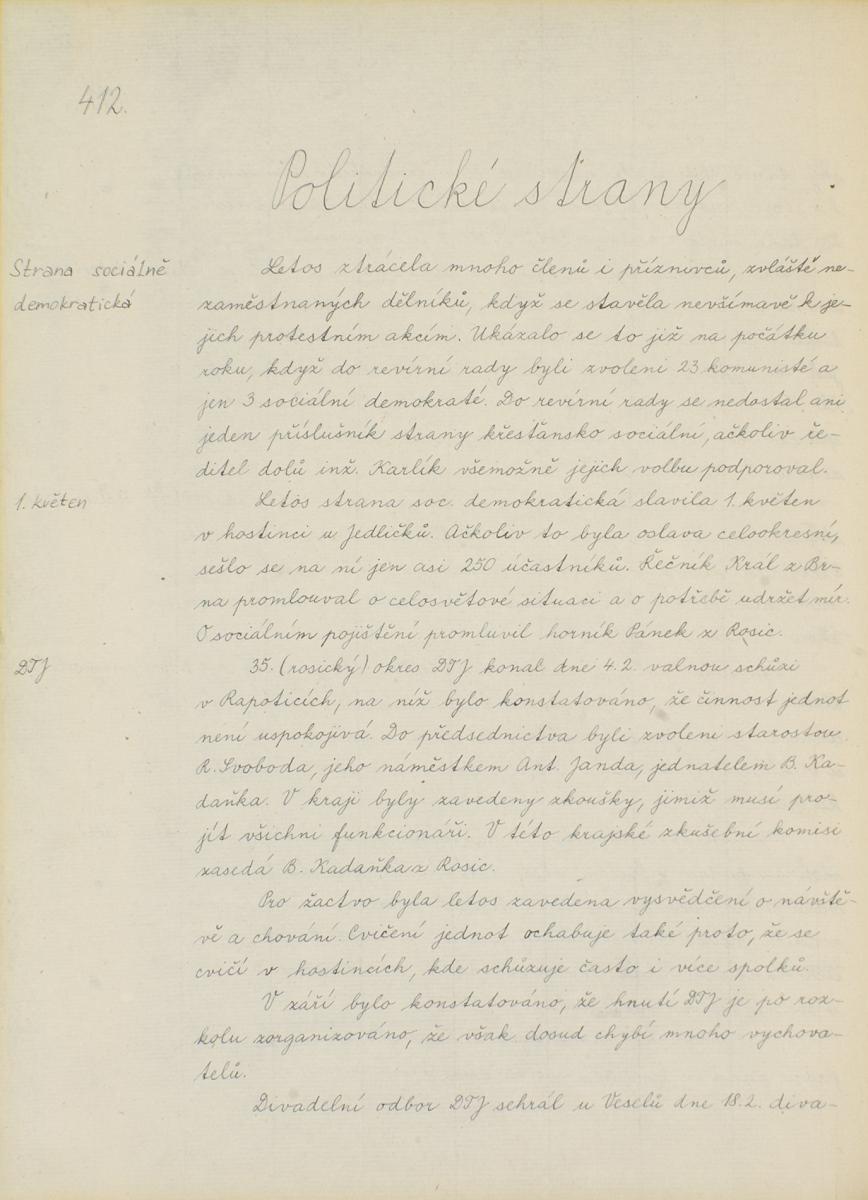 412.
Politické strany
Strana sociálně
demokratická
Letos ztrácela mnoho členů i příznivců, zvláště ne-
zaměstnaných dělníků, když se stavěla nevšímavě k je-
jich protestním akcím. Ukázalo se to již na počátku
roku, když do revírní rady byli zvoleni 23 komunisté a
jen 3 sociální demokraté. Do revírní rady se nedostal ani
jeden příslušník strany křesťansko sociální, ačkoliv ře-
ditel dolů inž. Karlík všemožně jejich volbu podporoval.
1. květen
Letos strana soc. demokratická slavila 1. květen
v hostinci u Jedličků. Ačkoliv to byla oslava celookresní,
sešlo se na ní jen asi 250 účastníků. Řečník Král z Br-
na promlouval o celosvětové situaci a o potřebě udržet mír.
O sociálním pojištění promluvil horník Pánek z Rosic.
DTJ
35. (rosický) okres DTJ konal dne 4.2. valnou schůzi
v Rapoticích, na níž bylo konstatováno, že činnost jednot
není uspokojivá. Do předsednictva byli zvoleni starostou
R. Svoboda, jeho náměstkem Ant. Janda, jednatelem B. Ka-
daňka. V kraji byly zavedeny zkoušky, jimiž musí pro-
jít všichni funkcionáři. V této krajské zkušební komisi
zasedá B. Kadaňka z Rosic.
Pro žactvo byla letos zavedena vysvědčení o návště-
vě a chování. Cvičení jednot ochabuje také proto, že se
cvičí v hostincích, kde schůzuje často i více spolků.
V září bylo konstatováno, že hnutí DTJ je po roz-
kolu zorganizováno, že však dosud chybí mnoho vychova-
telů.
Divadelní odbor DTJ sehrál u Veselů dne 18.2. diva-